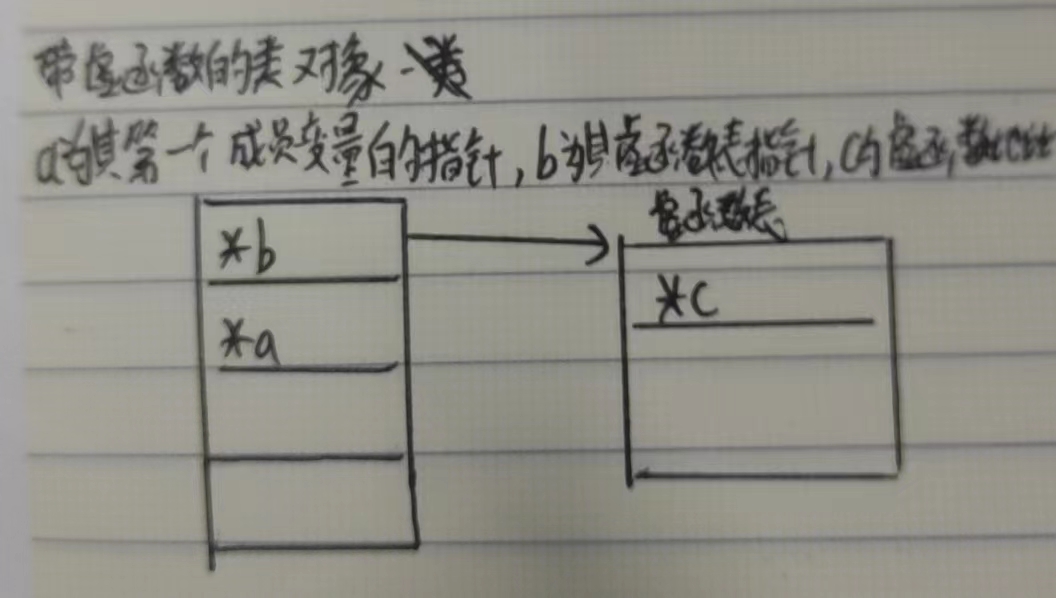 带虚函数的类对象
a为其第一个成员变量的指针,b为其虚函数表指针,c为虚函数
虚函数表
*b
*c
*a